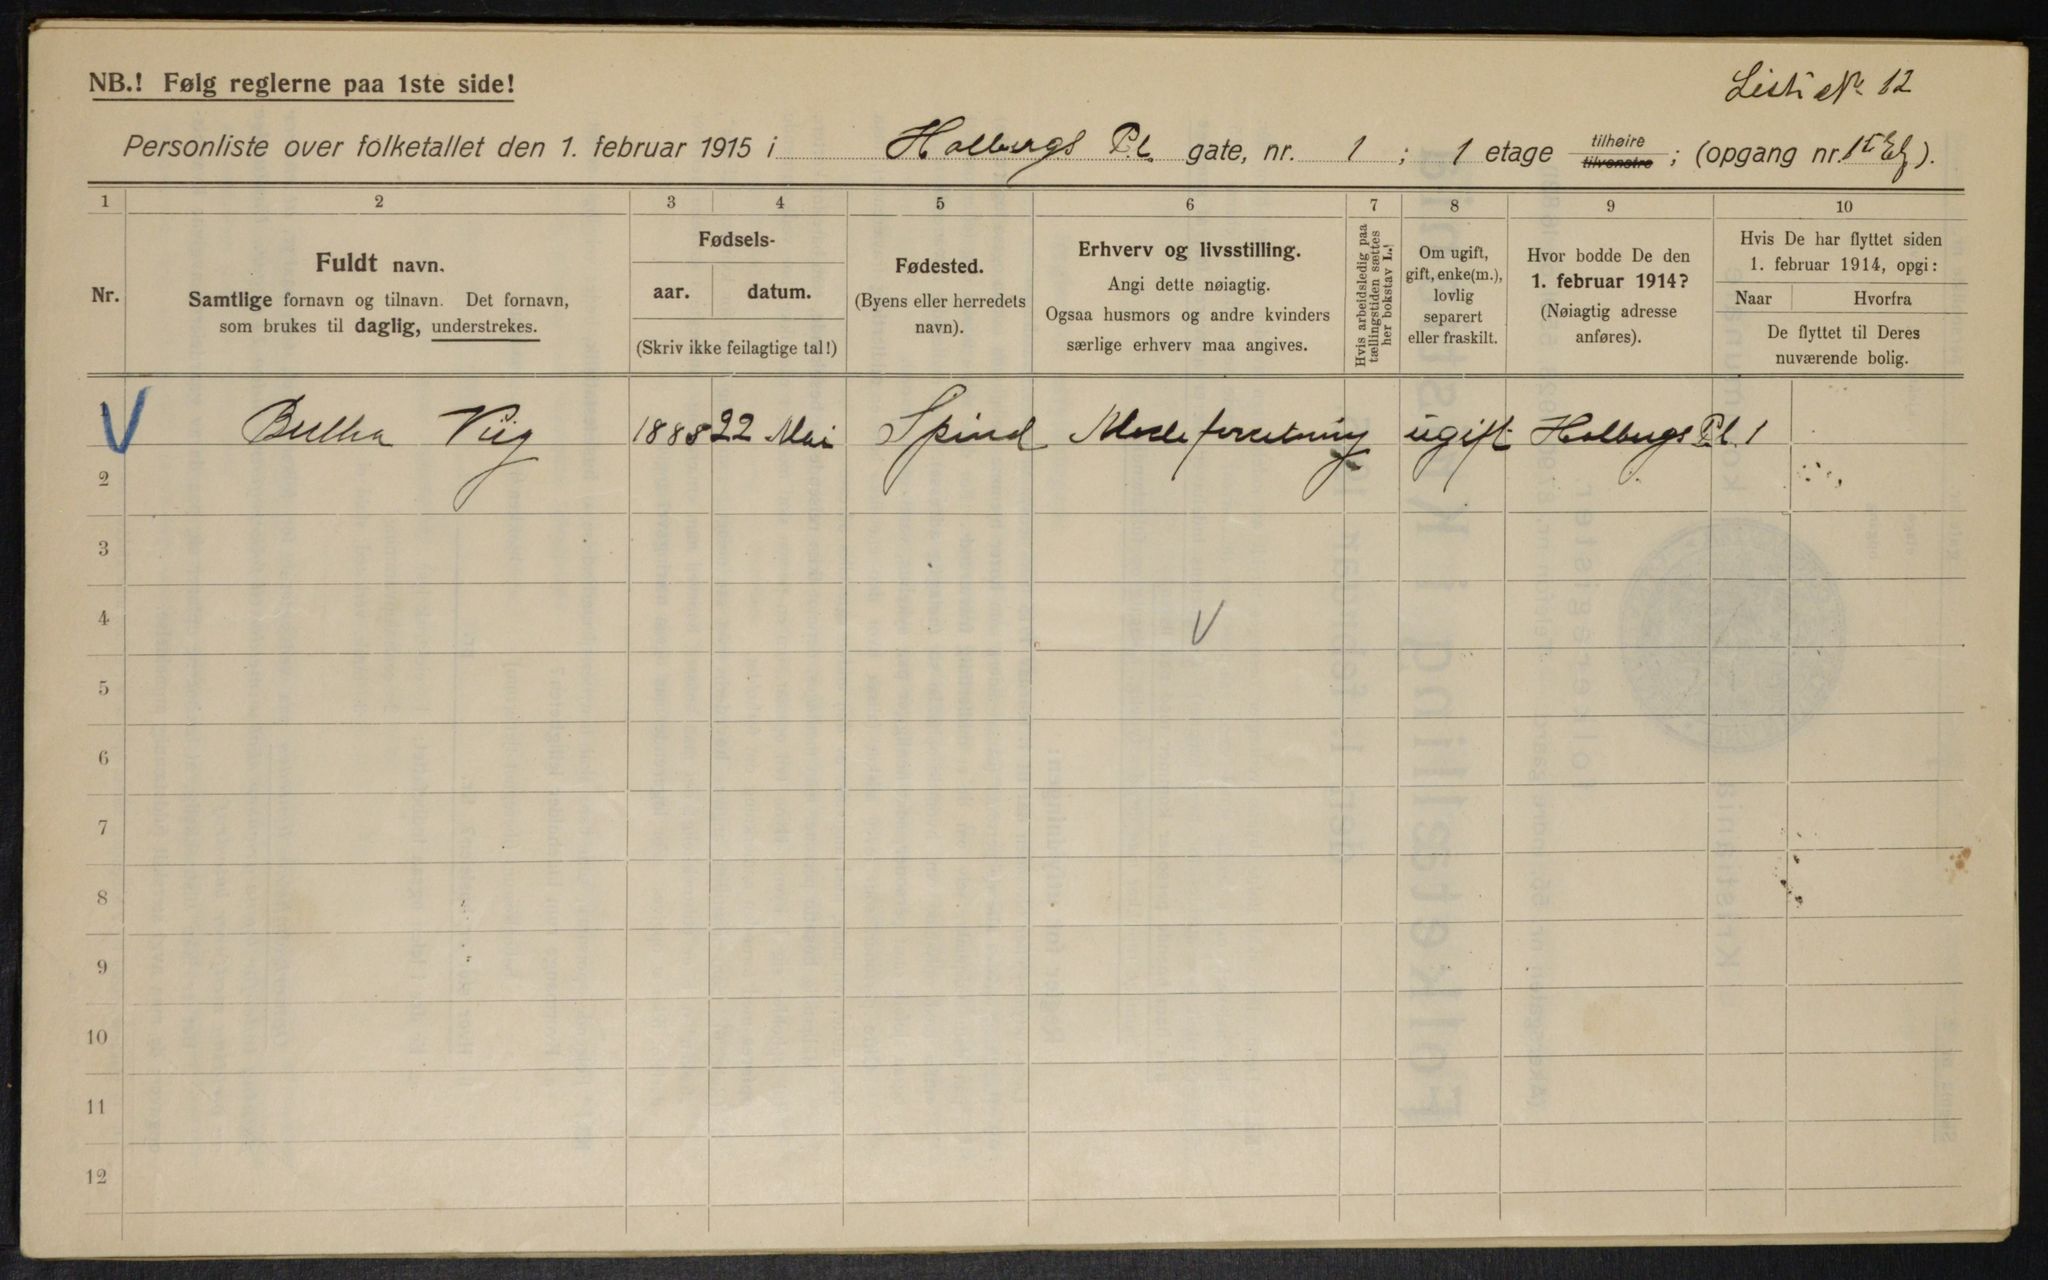 NB.! Følg reglerne paa 1ste side!
Liste No. 12
Personliste over folketallet den 1. februar 1915 i Holbergs Pl. gate, nr. 1 ; 1 etage tilhøire tilvenstre ; (opgang nr. ).
1 2 3 4 5 6 7 8 9 10
Nr.
Fuldt navn.
Samtlige fornavn og tilnavn. Det fornavn,
som brukes til daglig, understrekes.
Fødsels-
aar. datum.
(Skriv ikke feilagtige tal!)
Fødested.
(Byens eller herredets
navn).
Erhverv og livsstilling.
Angi dette nøiagtig.
Ogsaa husmors og andre kvinders
særlige erhverv maa angives.
Hvis arbeidsledig paa
tællingstiden sættes
her bokstav L.!
Om ugift,
gift, enke(m.),
lovlig
separert
eller fraskilt.
Hvor bodde De den
1. februar 1914?
(Nøiagtig adresse
anføres).
Hvis De har flyttet siden
1. februar 1914, opgi:
Naar Hvorfra
De flyttet til Deres
nuværende bolig.
Bertha Viig 1888 22 Mai Spind Modeforretning ugift Holbergs Pl. 1
2
3
4
5
6
7
8
9
10
11
12